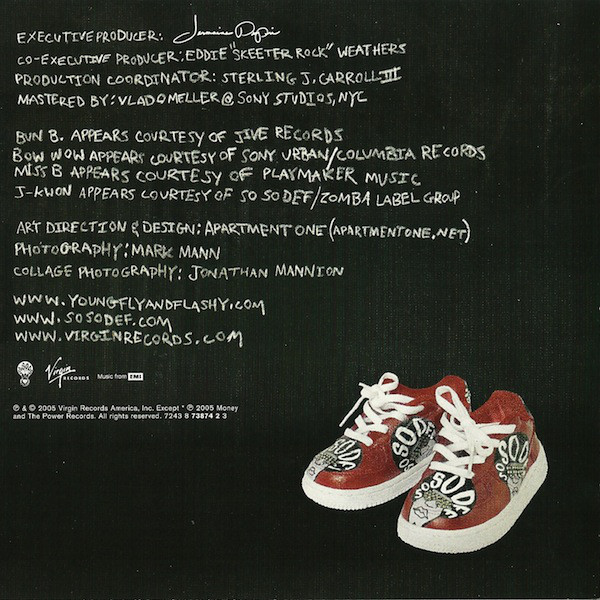 EXECUTIVE PRODUCER: Jermaine Dupri
CO-EXECUTIVE PRODUCER: EDDIE "SKEETER ROCK" WEATHERS
PRODUCTION COORDINATOR: STERLING J. CARROLL III
MASTERED BY: VLADO MELLER @ SONY STUDIOS, NYC
BUN B. APPEARS COURTESY OF JIVE RECORDS
BOW WOW APPEARS COURTESY OF SONY URBAN/COLUMBIA RECORDS
MISS B APPEARS COURTESY OF PLAYMAKER MUSIC
J-KWON APPEARS COURTESY OF SO SO DEF/ZOMBA LABEL GROUP
ART DIRECTION & DESIGN: APARTMENT ONE (APARTMENTONE.NET)
PHOTOGRAPHY: MARK MANN
COLLAGE PHOTOGRAPHY: JONATHAN MANNION
WWW.YOUNGFLYANDFLASHY.COM
WWW.SOSODEF.COM
WWW.VIRGINRECORDS.COM
Virgin RECORDS Music from EMI
℗ & © 2005 Virgin Records America, Inc. Except * ℗ 2005 Money
and The Power Records. All rights reserved. 7243 8 73874 2 3
SODE
SODE
SOSODE
SOD